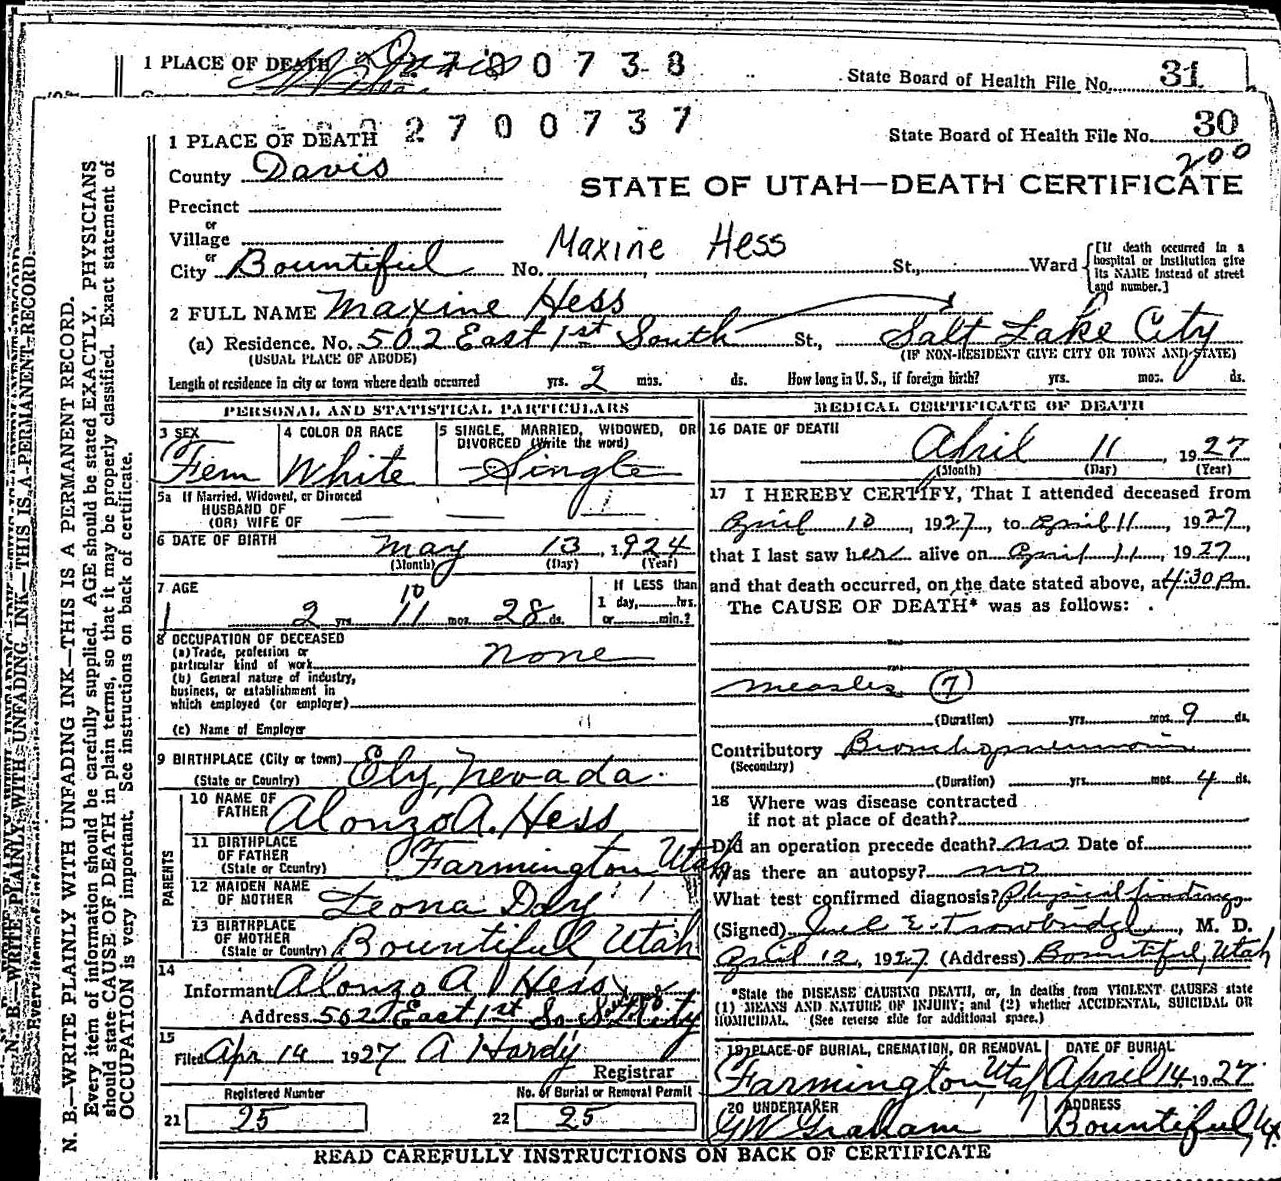 1 PLACE OF DEATH 2700738
State Board of Health File No. 31
2700737
1 PLACE OF DEATH
State Board of Health File No. 30
200
County Davis
STATE OF UTAH—DEATH CERTIFICATE
Precinct
or
Village
Maxine Hess
or
City Bountiful No. , St., Ward
[If death occurred in a hospital or institution give its NAME instead of street and number.]
2 FULL NAME Maxine Hess
(a) Residence. No. 502 East 1st South St., Salt Lake City
(USUAL PLACE OF ABODE) (IF NON-RESIDENT GIVE CITY OR TOWN AND STATE)
Length of residence in city or town where death occurred yrs. 2 mos. ds. How long in U. S., if foreign birth? yrs. mos. ds.
PERSONAL AND STATISTICAL PARTICULARS
3 SEX Fem
4 COLOR OR RACE White
5 SINGLE, MARRIED, WIDOWED, OR DIVORCED (Write the word) Single
5a If Married, Widowed, or Divorced
HUSBAND OF
(OR) WIFE OF
6 DATE OF BIRTH May 13, 1924
(Month) (Day) (Year)
7 AGE
10
2 yrs. 11 mos. 28 ds.
If LESS than
1 day, hrs.
or min.?
8 OCCUPATION OF DECEASED
(a) Trade, profession or
particular kind of work None
(b) General nature of industry,
business, or establishment in
which employed (or employer)
(c) Name of Employer
9 BIRTHPLACE (City or town) Ely, Nevada.
(State or Country)
PARENTS
10 NAME OF FATHER Alonzo A. Hess
11 BIRTHPLACE OF FATHER (State or Country) Farmington Utah
12 MAIDEN NAME OF MOTHER Leona Day
13 BIRTHPLACE OF MOTHER (State or Country) Bountiful Utah
14
Informant Alonzo A Hess
Address 502 East 1st So. City
15
Filed Apr 14 1927 A Hardy
Registrar
Registered Number
21 25
No. of Burial or Removal Permit
22 25
MEDICAL CERTIFICATE OF DEATH
16 DATE OF DEATH
April 11, 1927
(Month) (Day) (Year)
17 I HEREBY CERTIFY, That I attended deceased from
April 10, 1927, to April 11, 1927,
that I last saw her alive on April 11, 1927,
and that death occurred, on the date stated above, at 4:30 Pm.
The CAUSE OF DEATH* was as follows:
Measles (7)
(Duration) yrs. mos. 9 ds.
Contributory Bronchopneumonia
(Secondary)
(Duration) yrs. mos. 4 ds.
18 Where was disease contracted
if not at place of death?
Did an operation precede death? no Date of
Was there an autopsy? no
What test confirmed diagnosis? Physical findings
(Signed) E. Trowbridge, M. D.
April 12, 1927 (Address) Bountiful, Utah
*State the DISEASE CAUSING DEATH, or, in deaths from VIOLENT CAUSES state
(1) MEANS AND NATURE OF INJURY; and (2) whether ACCIDENTAL, SUICIDAL OR
HOMICIDAL. (See reverse side for additional space.)
19 PLACE OF BURIAL, CREMATION, OR REMOVAL
Farmington, Utah
DATE OF BURIAL
April 14, 1927
20 UNDERTAKER
GW Graham
ADDRESS
Bountiful, Ut
READ CAREFULLY INSTRUCTIONS ON BACK OF CERTIFICATE
N. B.—WRITE PLAINLY WITH UNFADING INK—THIS IS A PERMANENT RECORD.
Every item of information should be carefully supplied. AGE should be stated EXACTLY. PHYSICIANS
should state CAUSE OF DEATH in plain terms, so that it may be properly classified. Exact statement of
OCCUPATION is very important. See instructions on back of certificate.
N. B.—WRITE PLAINLY WITH UNFADING INK—THIS IS A PERMANENT RECORD.